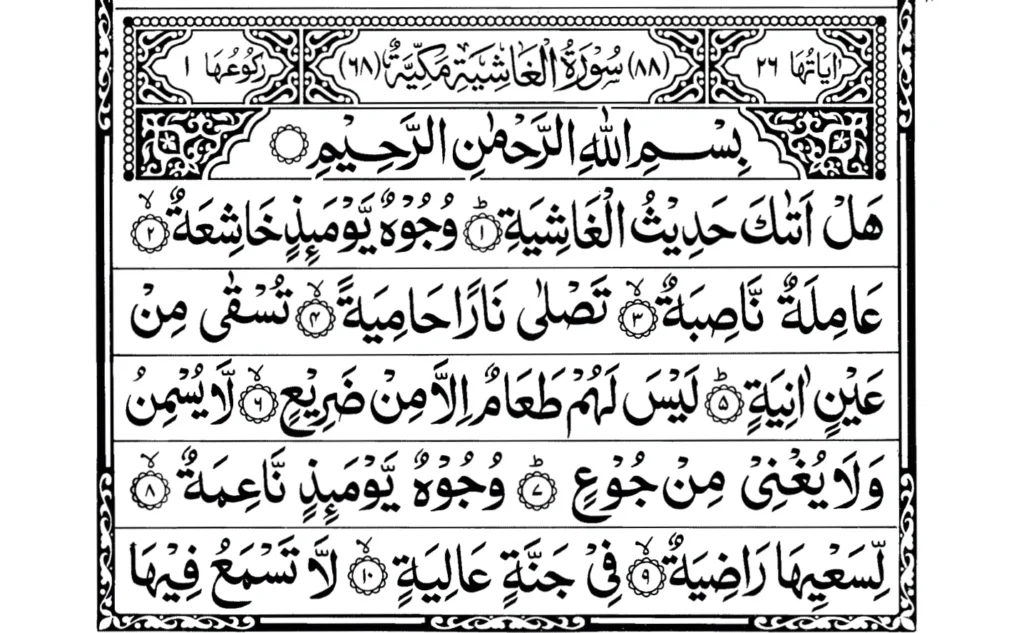 اٰيَاتُهَا ٢٦ (٨٨) سُوْرَةُ الْغَاشِيَةِ مَكِّيَّةٌ (٦٨) رُكُوْعُهَا ١
بِسْمِ اللّٰهِ الرَّحْمٰنِ الرَّحِيْمِ
هَلْ اَتٰىكَ حَدِيْثُ الْغَاشِيَةِ ؕ﴿١﴾ وُجُوْهٌ يَّوْمَىِٕذٍ خَاشِعَةٌ ۙ﴿٢﴾
عَامِلَةٌ نَّاصِبَةٌ ۙ﴿٣﴾ تَصْلٰى نَارًا حَامِيَةً ۙ﴿٤﴾ تُسْقٰى مِنْ
عَيْنٍ اٰنِيَةٍ ؕ﴿٥﴾ لَيْسَ لَهُمْ طَعَامٌ اِلَّا مِنْ ضَرِيْعٍ ۙ﴿٦﴾ لَّا يُسْمِنُ
وَلَا يُغْنِىْ مِنْ جُوْعٍ ؕ﴿٧﴾ وُجُوْهٌ يَّوْمَىِٕذٍ نَّاعِمَةٌ ۙ﴿٨﴾
لِّسَعْيِهَا رَاضِيَةٌ ۙ﴿٩﴾ فِىْ جَنَّةٍ عَالِيَةٍ ۙ﴿١٠﴾ لَّا تَسْمَعُ فِيْهَا